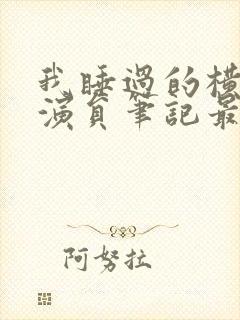 我睡過的橫
演員筆記最
阿努拉